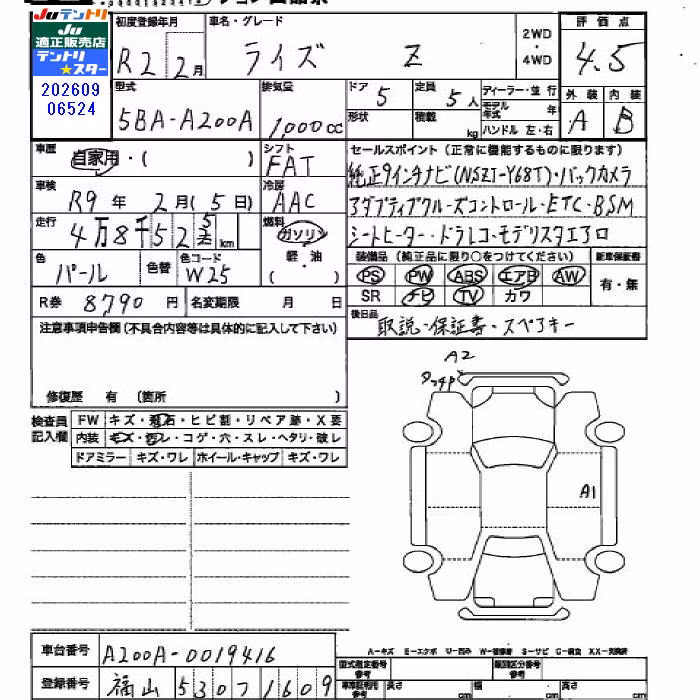 Ju テントリ
Ju
適正販売店
テントリ
★スター
202609
06524
初度登録年月
R2年2月
車名・グレード
ライズ Z
2WD
・
4WD
評価点
4.5
型式
5BA-A200A
排気量
1,000cc
ドア
5
定員
5人
形状
積載
kg
ディーラー・並行
モデル年式 年
ハンドル 左・右
外装 内装
A B
車歴
自家用・( )
シフト
FAT
車検
R9年2月(5日)
冷房
AAC
走行
4万8千52 km
燃料
ガソリン
軽・油
( )
色
パール
色替
色コード
W25
R券 8790円
名変期限 月 日
セールスポイント(正常に機能するものに限ります)
純正9インチナビ(NSZT-Y68T)・バックカメラ
アダプティブクルーズコントロール・ETC・BSM
シートヒーター・ドラレコ・モデリスタエアロ
装備品(純正品に限り○をつけてください)
新車保証書
PS PW ABS エアB AW
SR ナビ TV カワ
有・無
後日品
取説・保証書・スペアキー
注意事項申告欄(不具合内容等は具体的に記入して下さい)
修復歴 有 (箇所 )
検査員
記入欄
FW キズ・飛石・ヒビ割・リペア跡・X要
内装 キズ・汚レ・コゲ・穴・スレ・ヘタリ・破レ
ドアミラー キズ・ワレ ホイール・キャップ キズ・ワレ
A2
タッチP
A1
車台番号
A200A-0019416
登録番号
福山 530 ワ 1609
A-キズ E-エクボ U-凹み W-補修跡 S-サビ C-腐食 XX-交換済
型式指定番号
参考
類別区分番号
参考
車庫証明用
参考
長さ cm
幅 cm
高さ cm